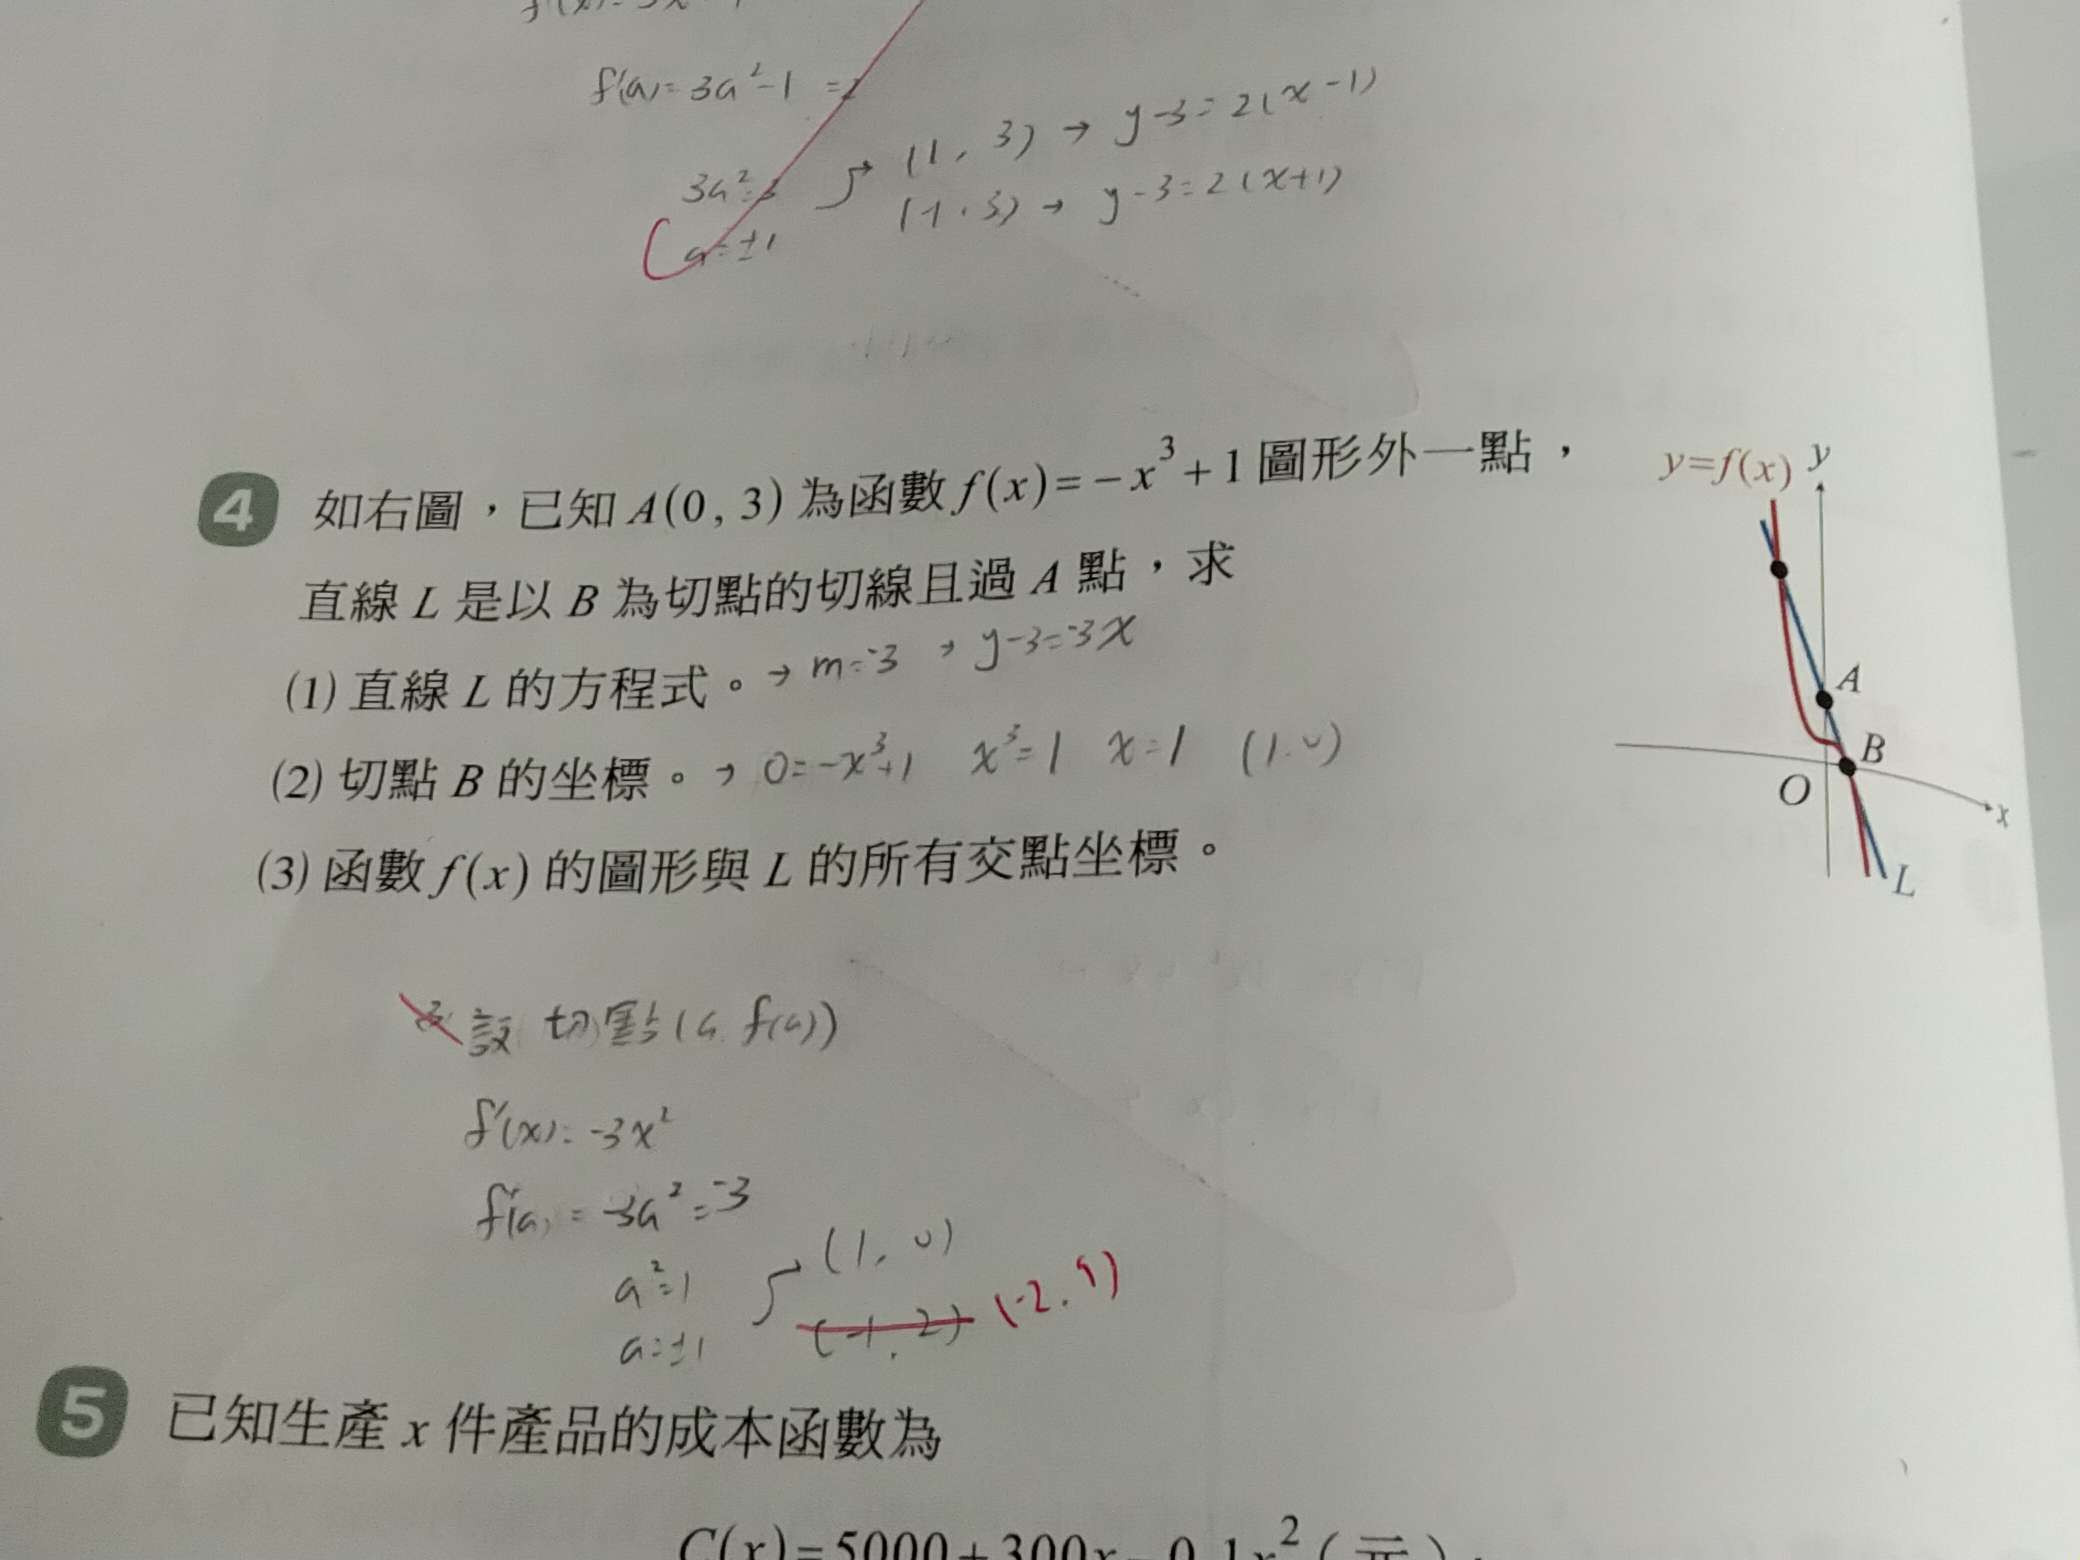 f'(a)=3a²-1 =2
3a²=3
a=±1
(1, 3) → y-3=2(x-1)
(-1, 3) → y-3=2(x+1)
4 如右圖，已知 A(0, 3) 為函數 f(x)=-x³+1 圖形外一點，
直線 L 是以 B 為切點的切線且過 A 點，求
(1) 直線 L 的方程式。→ m=-3 , y-3=-3x
(2) 切點 B 的坐標。→ 0=-x³+1 x³=1 x=1 (1,0)
(3) 函數 f(x) 的圖形與 L 的所有交點坐標。
y=f(x)
y
A
B
O
x
L
設 切點(a, f(a))
f'(x)=-3x²
f'(a)=-3a²=-3
a²=1
a=±1
(1, 0)
(-1, 2) (-2, 9)
5 已知生產 x 件產品的成本函數為
C(x)=5000+300x-0.1x² (元)